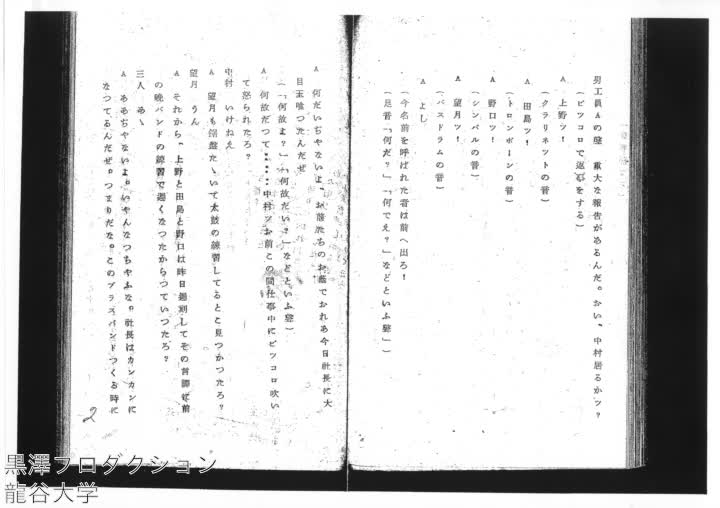 男工員Aの聲　重大な報告があるんだ。おい、中村居るかッ？
（ピツコロで返事をする）
A　上野ッ！
（クラリネツトの音）
A　田島ッ！
（トロンボーンの音）
A　野口ッ！
（シンバルの音）
A　望月ッ！
（バスドラムの音）
A　よし
（今名前を呼ばれた者は前へ出ろ！
（足音「何だ？」「何でえ？」などといふ聲」）
A　何だいぢやないよ、お前たちのお蔭でおれあ今日社長に大
目玉喰つたんだぜ
（「何故よ？」「何故だい？」などといふ聲）
A　何故だつて……中村ッお前この間仕事中にピツコロ吹い
て怒られたろ？
中村　いけねえ
A　望月も 盤たゝいて太鼓の練習してるとこ見つかつたろ？
望月　うん
A　それから、上野と田島と野口は昨日遅刻してその言譯に前
の晩バンドの練習で遅くなつたからつていつたろ？
三人　あゝ
A　ああぢやないよ。いやんなつちやふな。社長はカンカンに
なつてるんだぜ。つまりだな。このブラスバンドつくる時に
2
黒澤プロダクション
龍谷大学